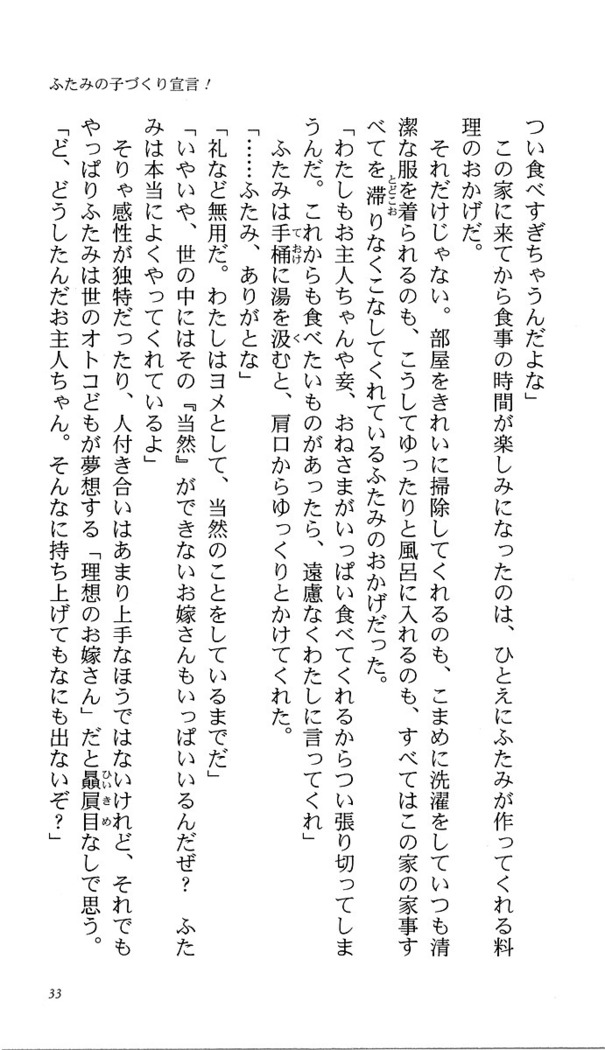 ふたみの子づくり宣言！
つい食べすぎちゃうんだよな」
　この家に来てから食事の時間が楽しみになったのは、ひとえにふたみが作ってくれる料
理のおかげだ。
　それだけじゃない。部屋をきれいに掃除してくれるのも、こまめに洗濯をしていつも清
潔な服を着られるのも、こうしてゆったりと風呂に入れるのも、すべてはこの家の家事す
べてを滞りなくこなしてくれているふたみのおかげだった。
「わたしもお主人ちゃんや妾、おねさまがいっぱい食べてくれるからつい張り切ってしま
うんだ。これからも食べたいものがあったら、遠慮なくわたしに言ってくれ」
　ふたみは手桶に湯を汲むと、肩口からゆっくりとかけてくれた。
「……ふたみ、ありがとな」
「礼など無用だ。わたしはヨメとして、当然のことをしているまでだ」
「いやいや、世の中にはその『当然』ができないお嫁さんもいっぱいいるんだぜ？　ふた
みは本当によくやってくれているよ」
　そりゃ感性が独特だったり、人付き合いはあまり上手なほうではないけれど、それでも
やっぱりふたみは世のオトコどもが夢想する「理想のお嫁さん」だと贔屓目なしで思う。
「ど、どうしたんだお主人ちゃん。そんなに持ち上げてもなにも出ないぞ？」
33